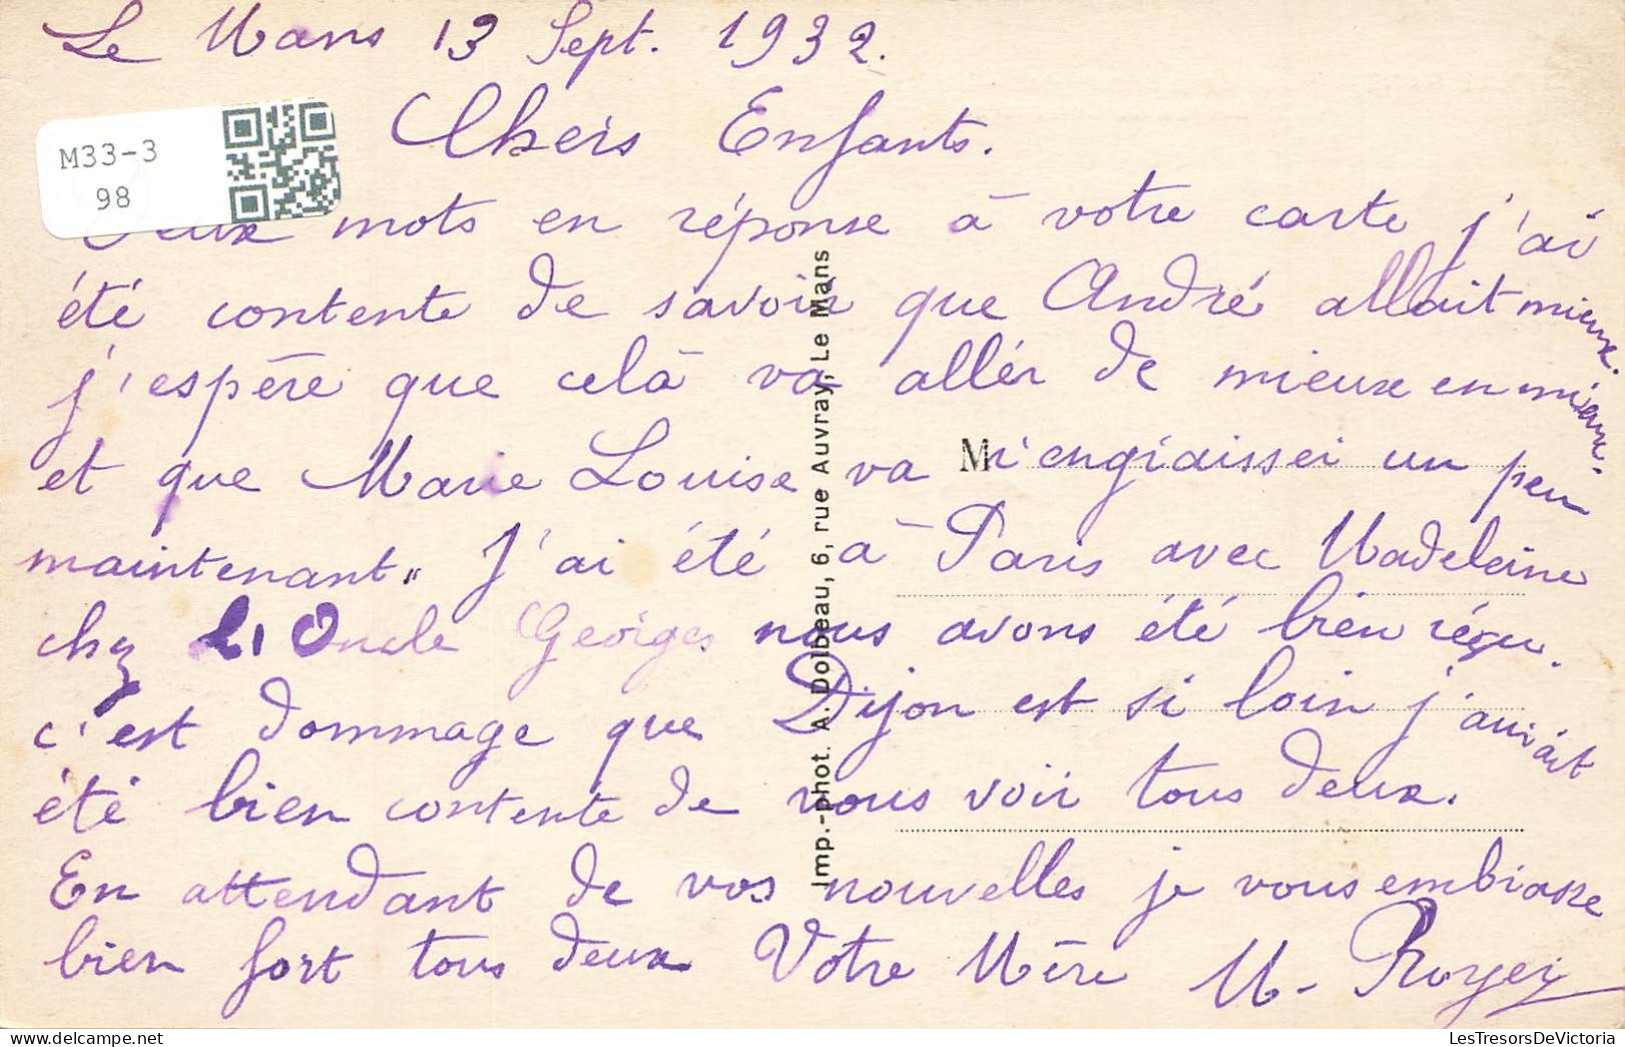 Le Mans 13 Sept. 1932.
Chers Enfants.
M33-3
98
Deux mots en réponse à votre carte j'ai
été contente de savoir que André allait mieux.
j'espère que celà va allér de mieux en mieux.
et que Marie Louise va M'engraisser un peu
maintenant„ J'ai été à Paris avec Madeleine
chez L'Oncle Georges nous avons été bien réçu.
c'est dommage que Dijon est si loin j'aurait
été bien contente de vous voir tous deux.
En attendant de vos nouvelles je vous embrasse
bien fort tous deux Votre Mère M. Royer
Imp.-phot. A. Dolbeau, 6, rue Auvray, Le Mans
LesTresorsDeVictoria